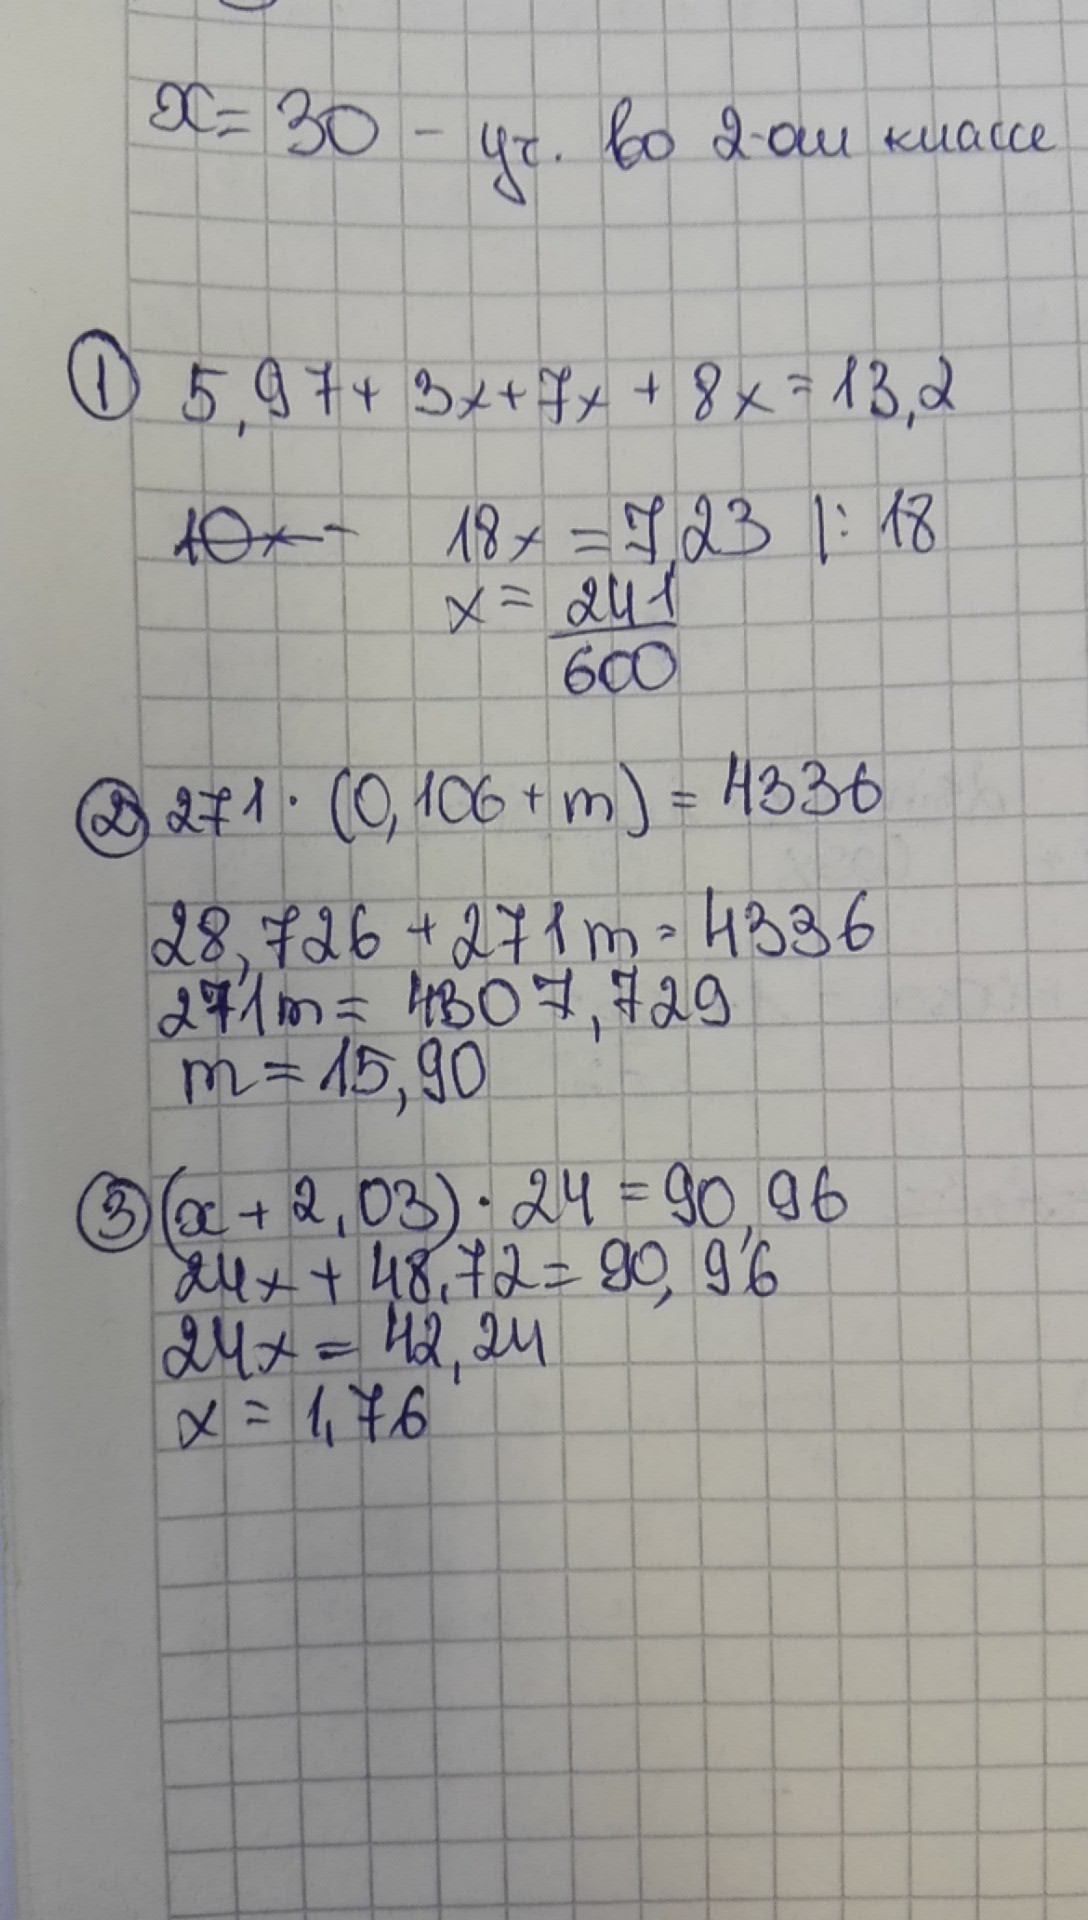 x = 30 - уч. во 2-ом классе
① 5,97 + 3x + 7x + 8x = 13,2
18x = 7,23 |: 18
x = 241/600
② 271 · (0,106 + m) = 4336
28,726 + 271m = 4336
271m = 4307,729
m = 15,90
③ (x + 2,03) · 24 = 90,96
24x + 48,72 = 90,96
24x = 42,24
x = 1,76